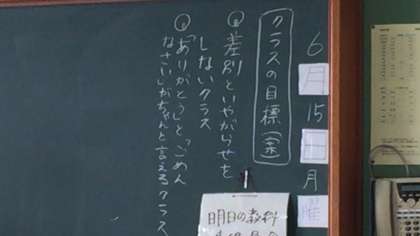 6月15日月曜
クラスの目標(案)
①差別といやがらせを
しないクラス
②「ありがとう」と「ごめん
なさい」がちゃんと言えるクラス
明日の教科